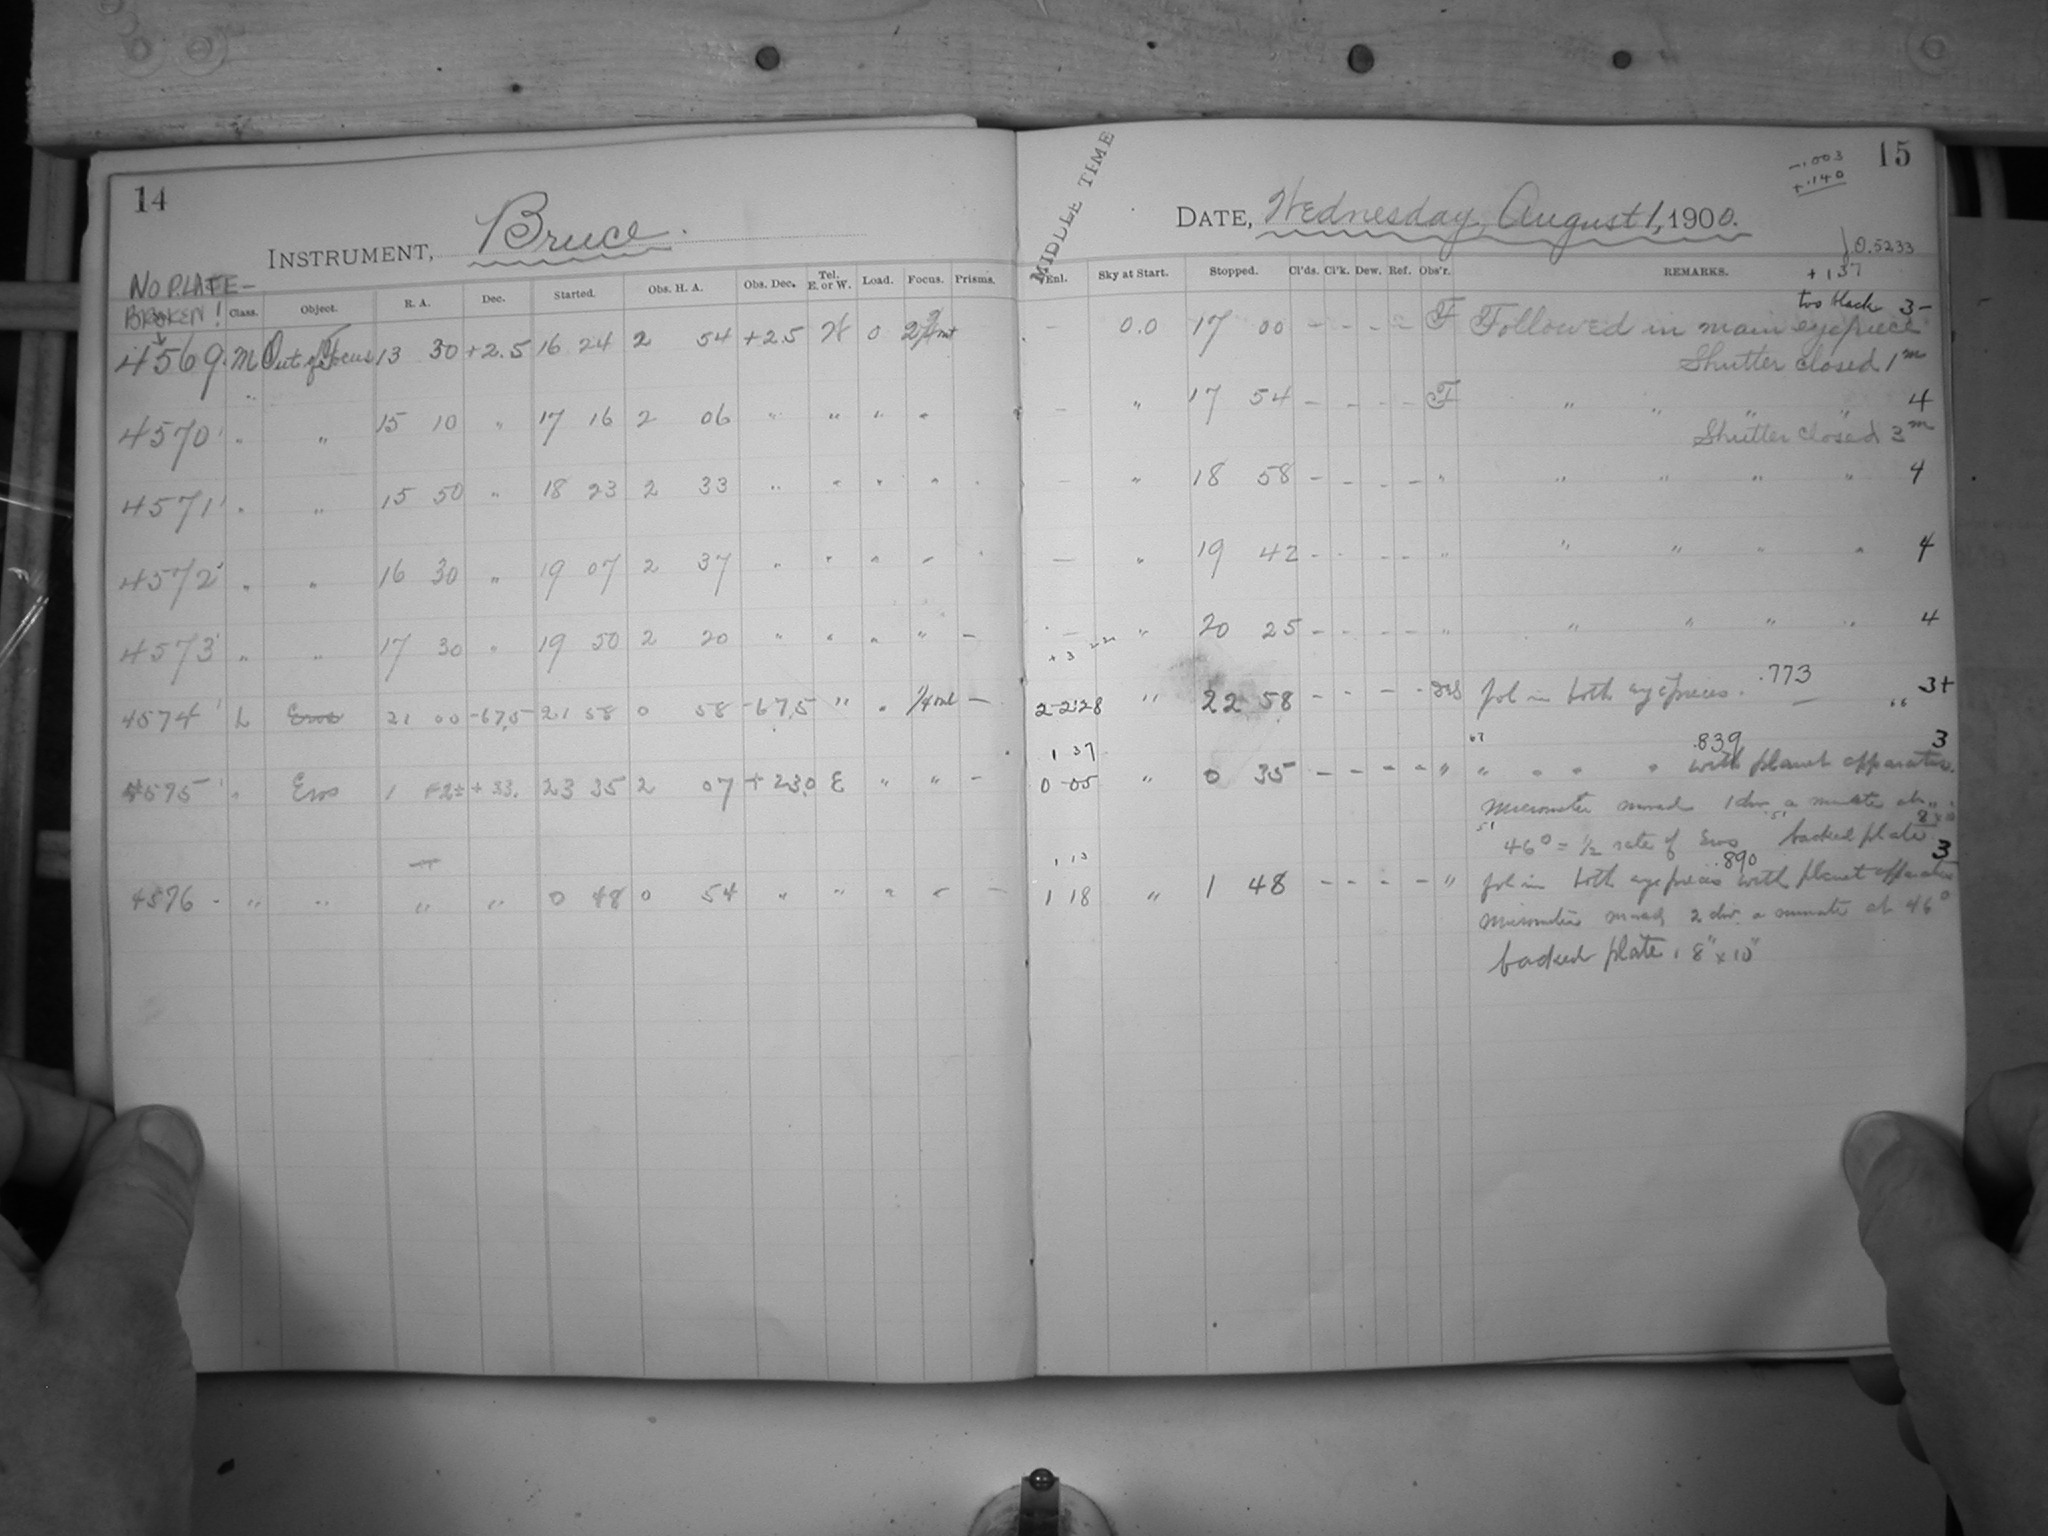 14
INSTRUMENT, Bruce.
NO PLATE -
BROKEN!
Class. Object. R. A. Dec. Started. Obs. H. A. Obs. Dec. Tel. E. or W. Load. Focus. Prisms.
4569 M Out of Focus 13 30 +2.5 16 24 2 54 +2.5 W 0
4570 " " 15 10 " 17 16 2 06 " " " "
4571 " " 15 50 " 18 23 2 33 " " " "
4572 " " 16 30 " 19 07 2 37 " " " "
4573 " " 17 30 " 19 50 2 20 " " " " -
4574 L Eros 21 00 -67.5 21 58 0 58 -67.5 " " -
4575 " Eros 1 +23. 23 35 2 07 +23.0 E " " -
4576 - " " " " 0 48 0 54 " " " " -
15
-.003
+.140
MIDDLE TIME
DATE, Wednesday, August 1, 1900.
0.5233
+137
Enl. Sky at Start. Stopped. Cl'ds. Cl'k. Dew. Ref. Obs'r. REMARKS.
too black 3-
- 0.0 17 00 - - - - F Followed in main eyepiece
Shutter closed 1m
- " 17 54 - - - - F " " " " 4
Shutter closed 3m
- " 18 58 - - - - " " " " " 4
- " 19 42 - - - - " " " " " 4
- " 20 25 - - - - " " " " " 4
.773
22 28 " 22 58 - - - - fol in both eyepieces. 3+
1 37
.839 3
0 05 " 0 35 - - - - " " " " " with planet apparatus.
Micrometer moved 1 div a minute at
46° = 1/2 rate of Eros backed plate 8 x 10
1 13
.890 3
1 18 " 1 48 - - - - " fol in both eyepieces with planet apparatus
Micrometer moved 2 div a minute at 46°
backed plate, 8" x 10"